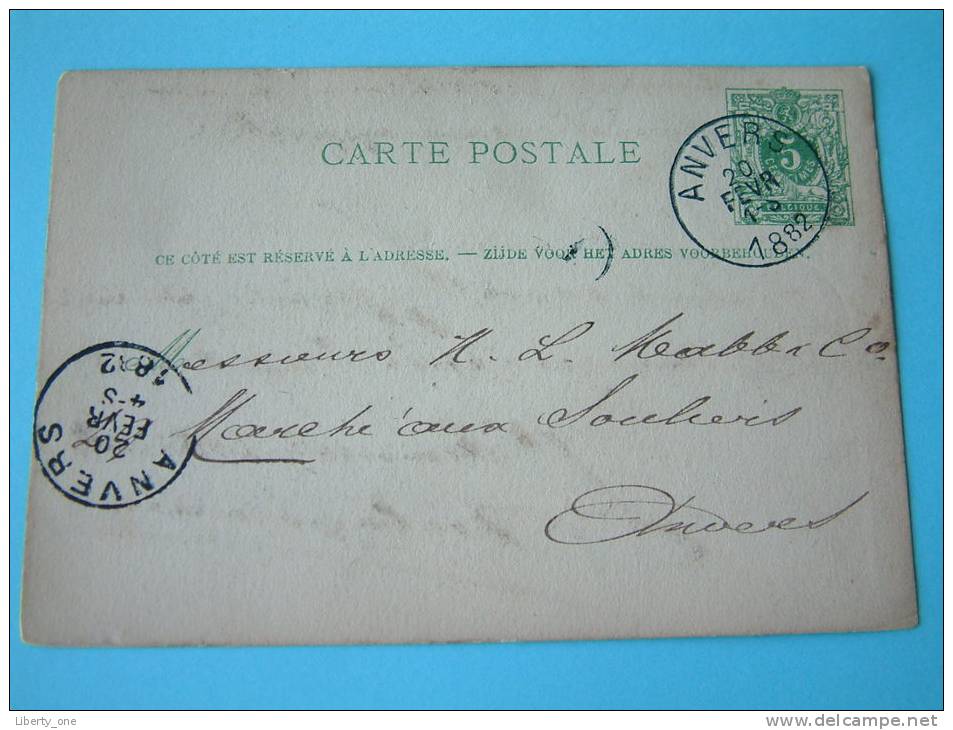 CARTE POSTALE
5
CENTIMES
BELGIQUE
ANVERS
20
FEVR
1882
CE CÔTÉ EST RÉSERVÉ À L'ADRESSE. — ZIJDE VOOR HET ADRES VOORBEHOUDEN.
Messieurs H. L. & Co
Marché aux Souliers
Anvers
ANVERS
20
FEVR
4-5
1882
Liberty_one
delcampe.net